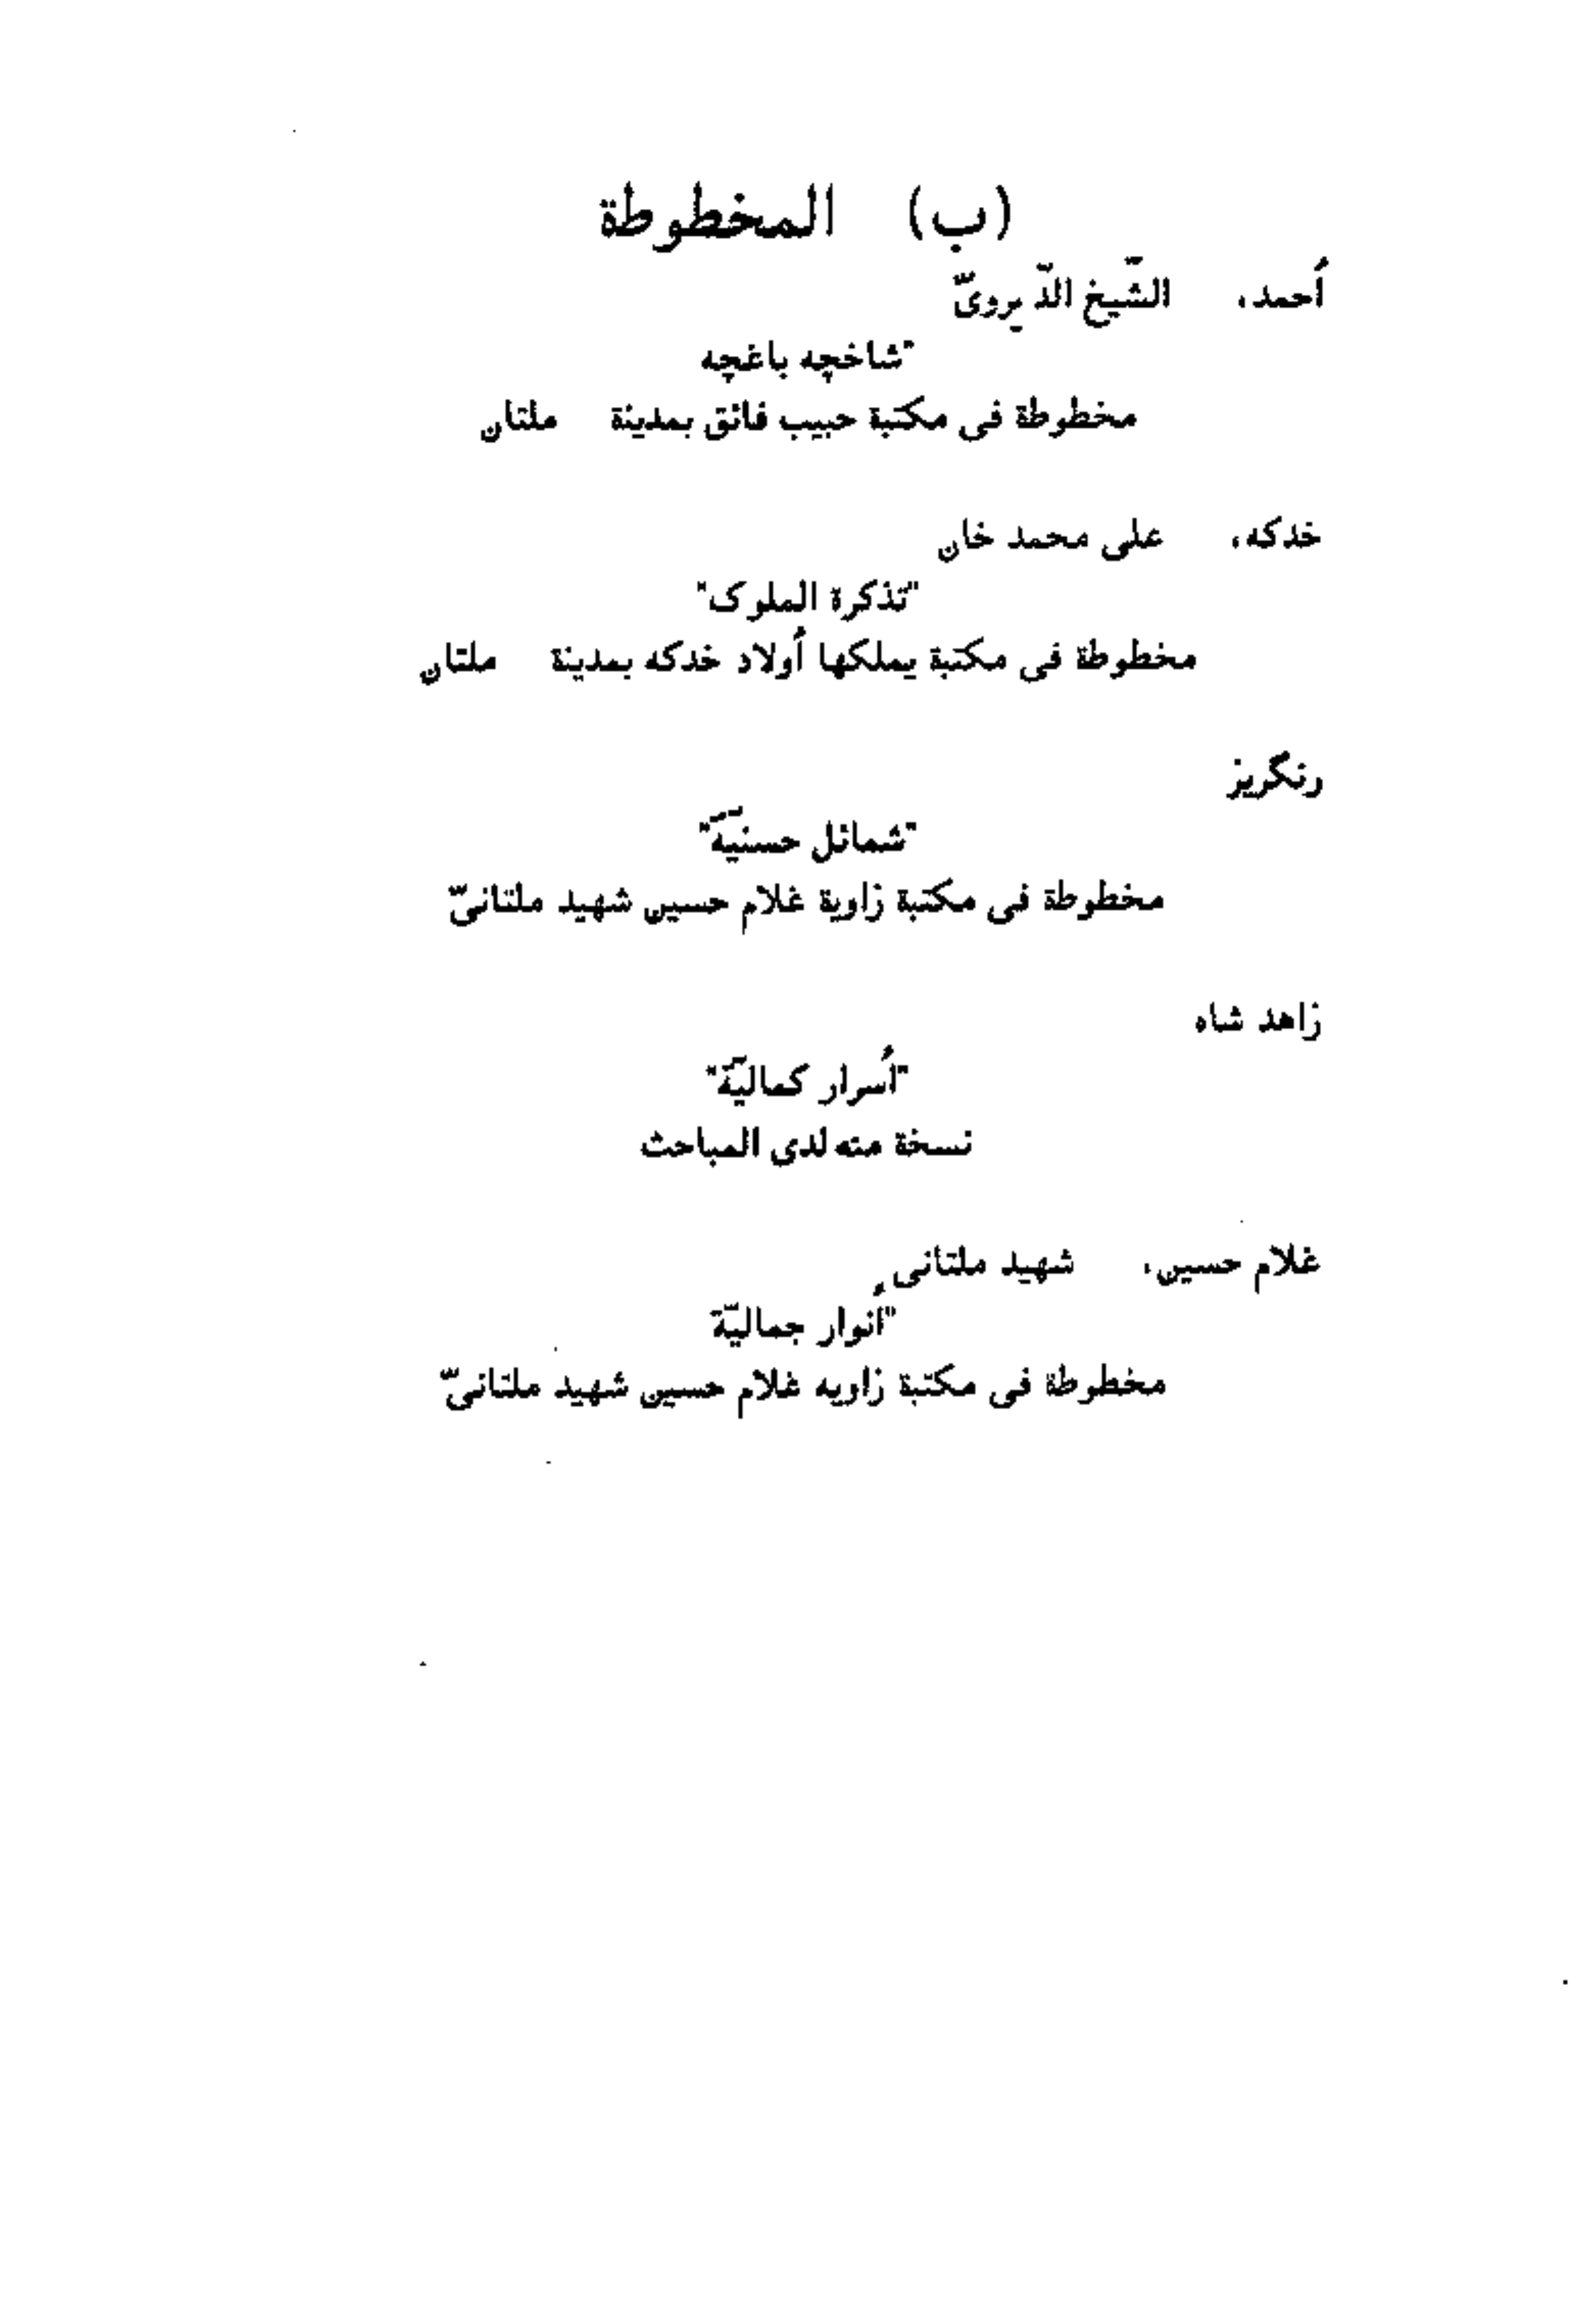 (ب) المخطوطة
أحمد، الشّيخ الدّيرویّ
"شاخچه باغچه
مخطوطة فی مكتبة حبيب فائق بمدينة ملتان
خدكه، علی محمد خان
"تذكرة الملوک"
مخطوطة فی مكتبة يملكها أولاد خدكه بمدينة ملتان
رنگريز
"شمائل حسنيّة"
مخطوطة فی مكتبة زاوية غلام حسين شهيد ملتانیّ
زاهد شاه
"أسرار كماليّة"
نسخة منه لدى المباحث
غلام حسين، شهيد ملتانی
"أنوار جماليّة
مخطوطة فی مكتبة زاويه غلام حسين شهيد ملتانیّ